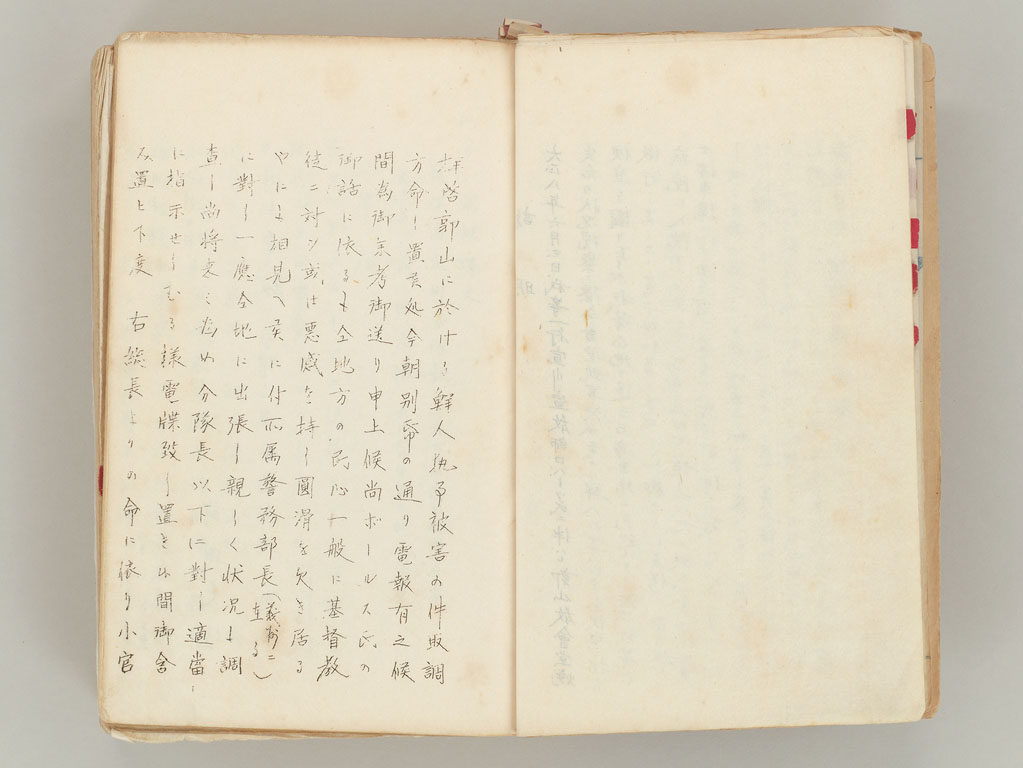 拝啓郭山に於ける鮮人執事被害の件取調
方命し置候処今朝別帋の通り電報有之候
間為御参考御送り申上候尚ボールス氏の
御話に依るも仝地方の民心一般に基督教
徒ニ対シ或は悪感を持し圓滑を欠き居る
やに相見へ候に付所属警務部長(義州ニ在る)
に對し一應仝地に出張し親しく状況を調
査し尚将来ニ為め分隊長以下に對し適當
に指示せしむる様電牒致し置き候間御含
み置と下度 右総長よりの命に依り小官